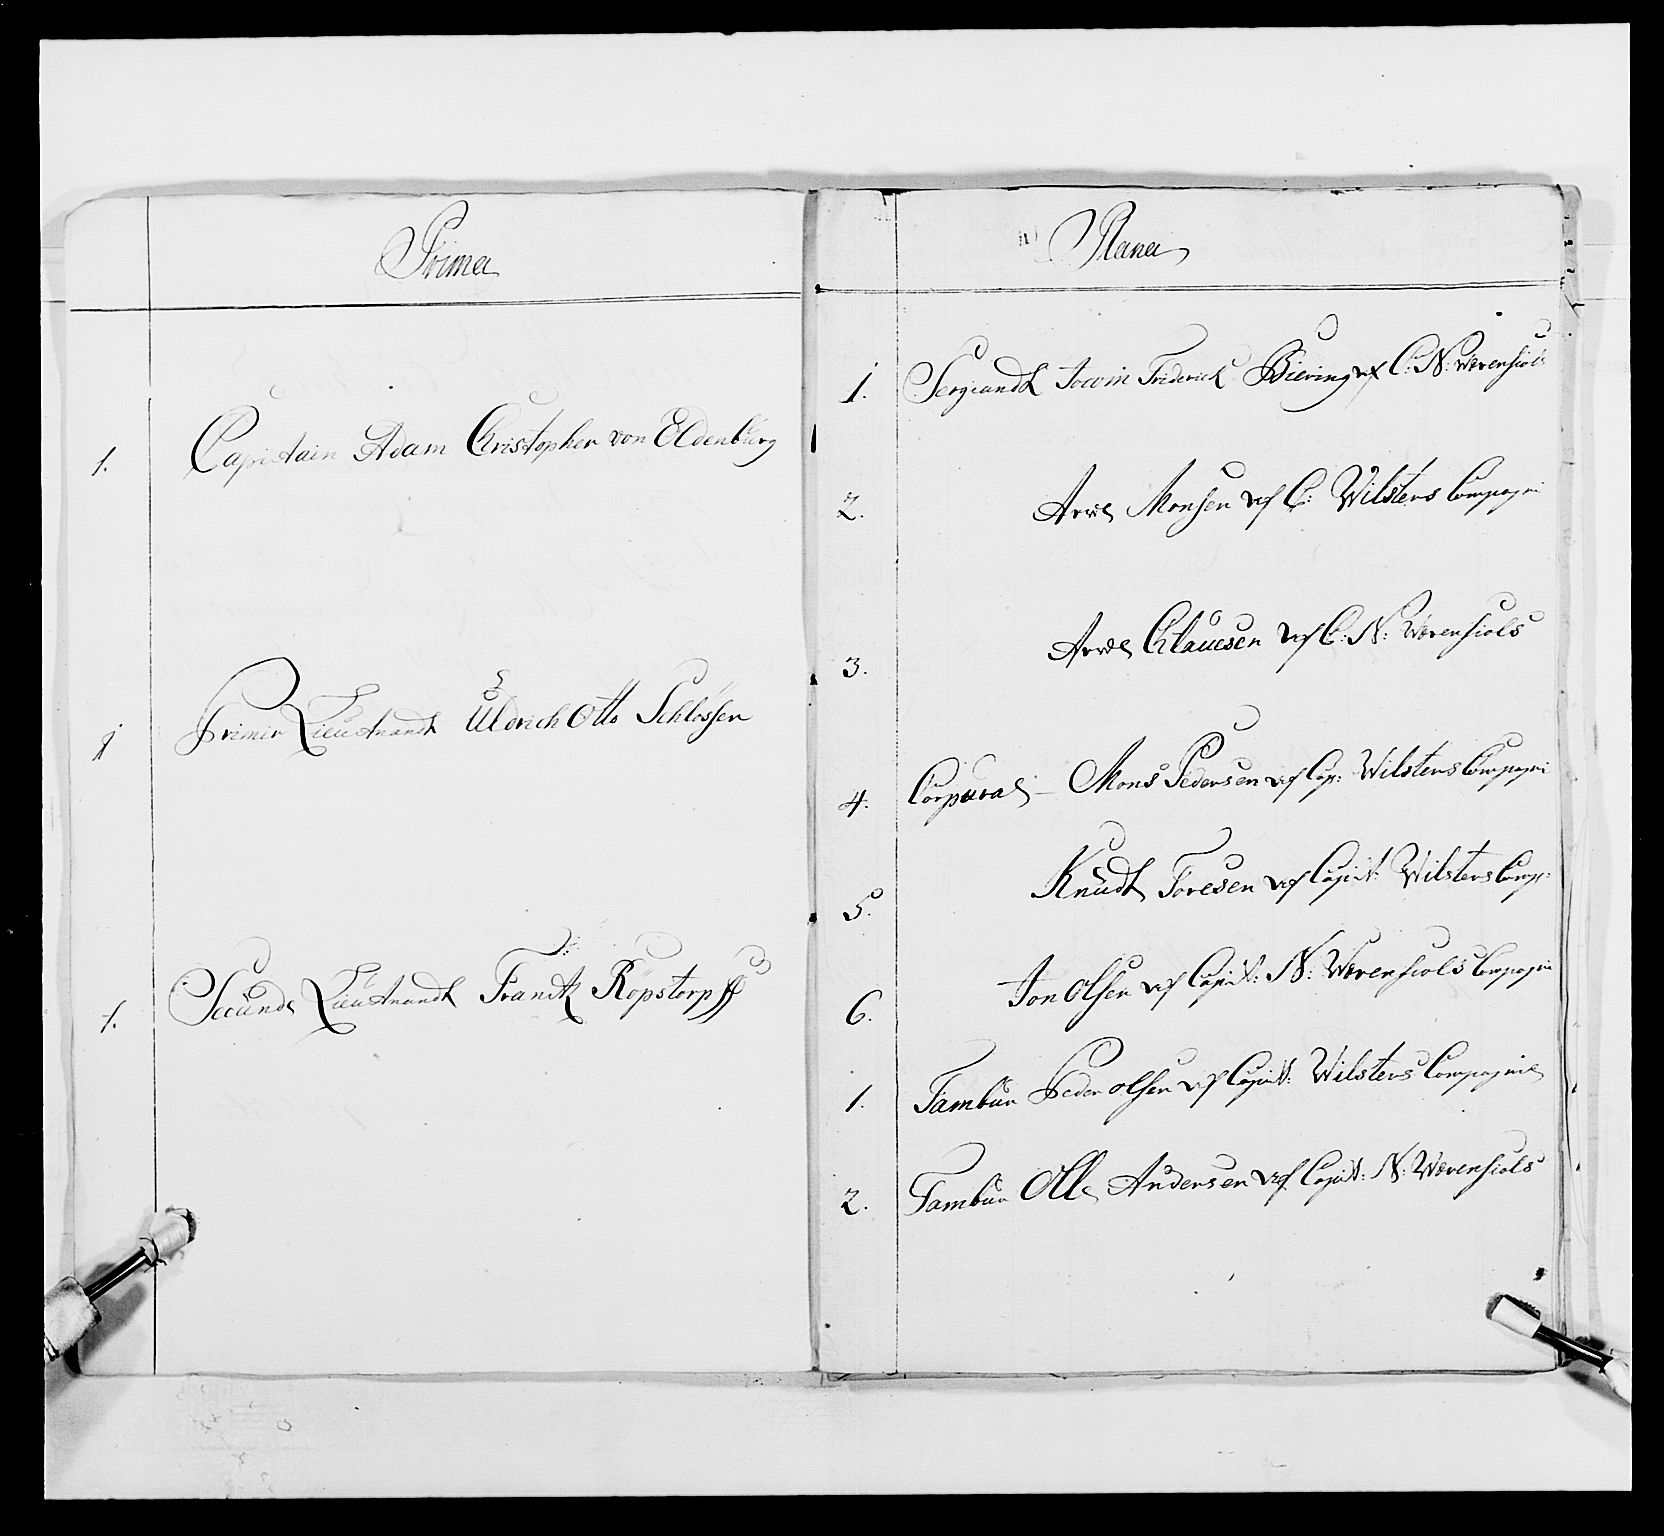 Prima
1. Capitain Adam Christopher von Eldenburg
1 Premir Lieutnandt Uldrich Otto Schlösser
1. Secund Lieutnandt Frantz Röpstorpff
Plana
1. Sergiandt Friderick Biering af C: N: Werenfiols
2. Arve Monsen af C: Wilsters Compagni
3. Arve Clauesen af C: N: Werenfiols
4. Corpural - Mons Pedersen af Cap: Wilsters Compagni
5. Knudt Toresen af Capit: Wilsters Comp:
6. Jon Olsen af Capit: N: Werenfiols Compagni
1. Tambur Peder Olsen af Capit: Wilsters Compagnie
2. Tambur Olle Andersen af Capit: N: Werenfiols